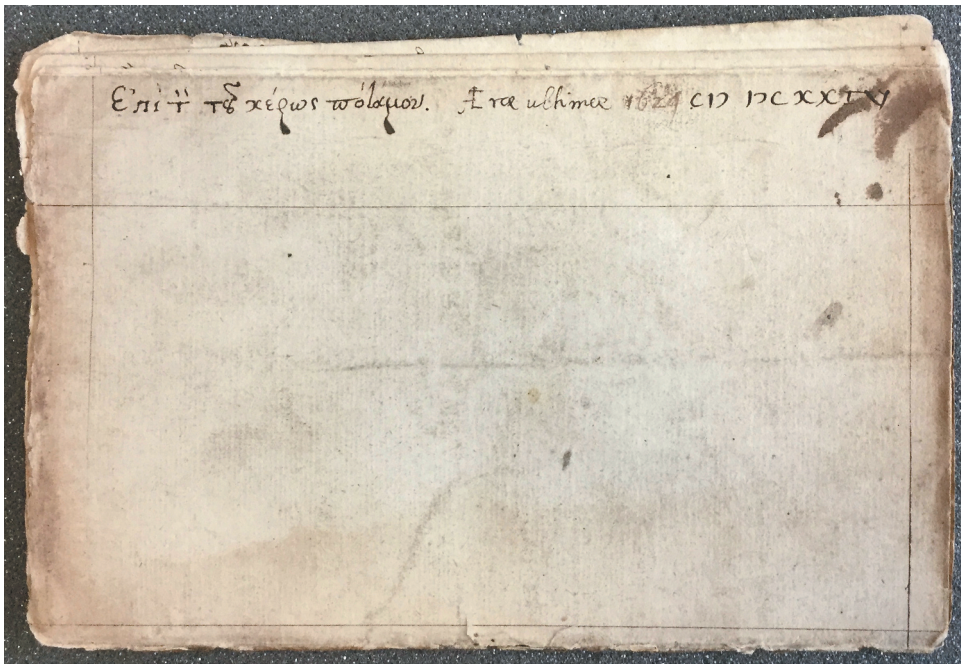 Ἐπὶ τ̈ τȣ͂ κέρως πόταμον. Æræ ultimæ 1624 CIↃ IↃCXXIV